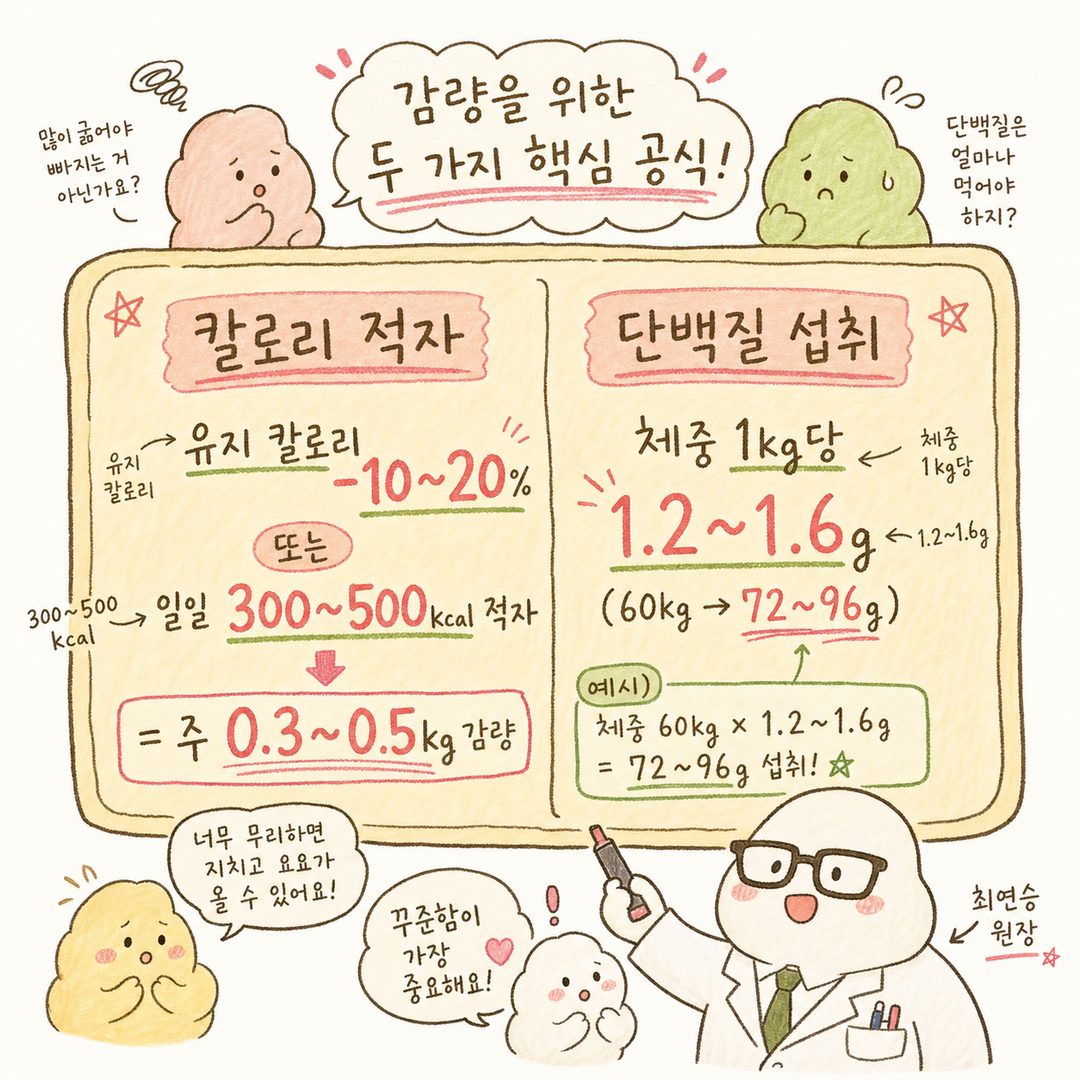 감량을 위한
두 가지 핵심 공식!
많이 굶어야
빠지는 거
아닌가요?
단백질은
얼마나
먹어야
하지?
칼로리 적자
유지
칼로리
유지 칼로리
-10~20%
또는
300~500
kcal
일일 300~500kcal 적자
= 주 0.3~0.5kg 감량
단백질 섭취
체중 1kg당
체중
1kg당
1.2~1.6g
1.2~1.6g
(60kg → 72~96g)
예시)
체중 60kg × 1.2~1.6g
= 72~96g 섭취!
너무 무리하면
지치고 요요가
올 수 있어요!
꾸준함이
가장
중요해요!
최연승
원장